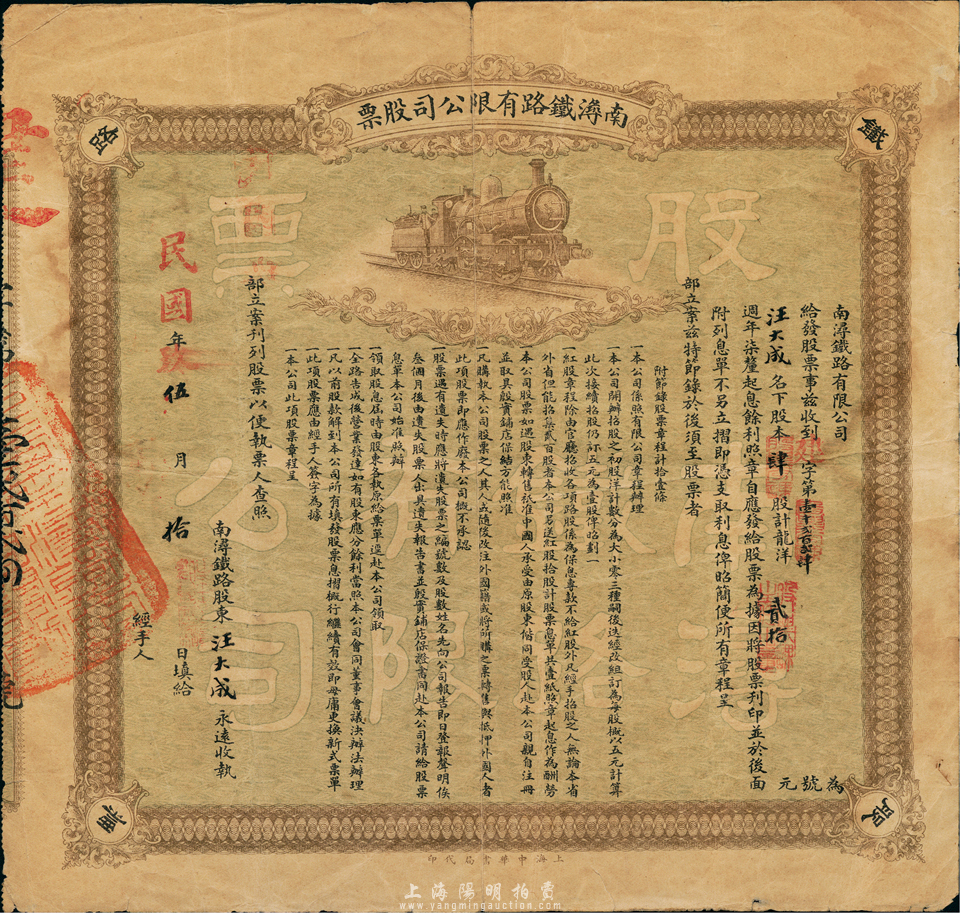 南潯鐵路有限公司股票
鐵
路
股
票
股票
南潯鐵路有限公司
為
給發股票事茲收到
字第壹千貳百貳拾肆
號
汪大成名下股本肆股計龍洋貳拾元
週年柒釐起息餘利照章自應發給股票為據因將股票刊印並於後面
附列息單不另立摺即憑支取利息俾昭簡便所有章程呈
部立案茲特節錄於後須至股票者
附節錄股票章程計拾壹條
一本公司係照有限公司章程辦理
一本公司開辦招股之初股洋計數分為大小零三種嗣後迭經改組訂為每股概以五元計算
此次接續招股仍訂五元為壹股俾昭劃一
一紅股章程除由官廳招收各項路股係為保息專款不給紅股外凡經手招股之人無論本省
外省但能招集貳百股者本公司另送紅股拾股計股票息單共壹紙照章起息作為酬勞
一本公司股票如遇股東轉售祇准中國人承受由原股東偕同受股人赴本公司親自注冊
並取具殷實鋪店保結方能照准
一凡購執本公司股票之人其人或隨後改注外國籍或將所購之票轉售與抵押外國人者
此項股票即應作廢本公司概不承認
一股票遇有遺失時應將遺失股票之編號數及股數姓名先向公司報告即日登報聲明俟
叁個月後由遺失股票人出具遺失報告書並殷實鋪店保證書同赴本公司請給股票
息單本公司始准照辦
一領取股息屆時由股東各執原給票單逕赴本公司領取
一全路告成後營業發達如有股東應分餘利當照本公司會同董事會議決辦法辦理
一凡以前股款解到本公司所有填發股票息摺概行繼續有效即毋庸更換新式票單
一此項股票應由經手人簽字為據
一本公司此項股票章程呈
部立案刊列股票以便執票人查照
南潯鐵路股東汪大成永遠收執
民國年伍月拾日填給
經手人
上海中華書局代印
上海陽明拍賣
www.yangmingauction.com